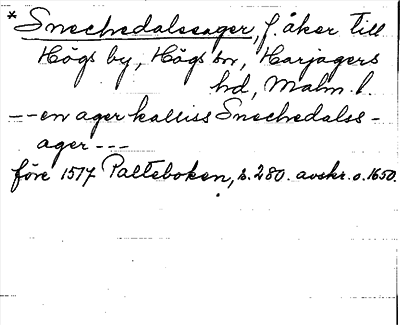 * Snechedalssager, f. åker till
Högs by, Högs sn, Harjagers
hd, Malm. l.
--- en ager kalliss Snechedalss-
ager ---
före 1517 Palteboken, s. 280. avskr. o. 1650.